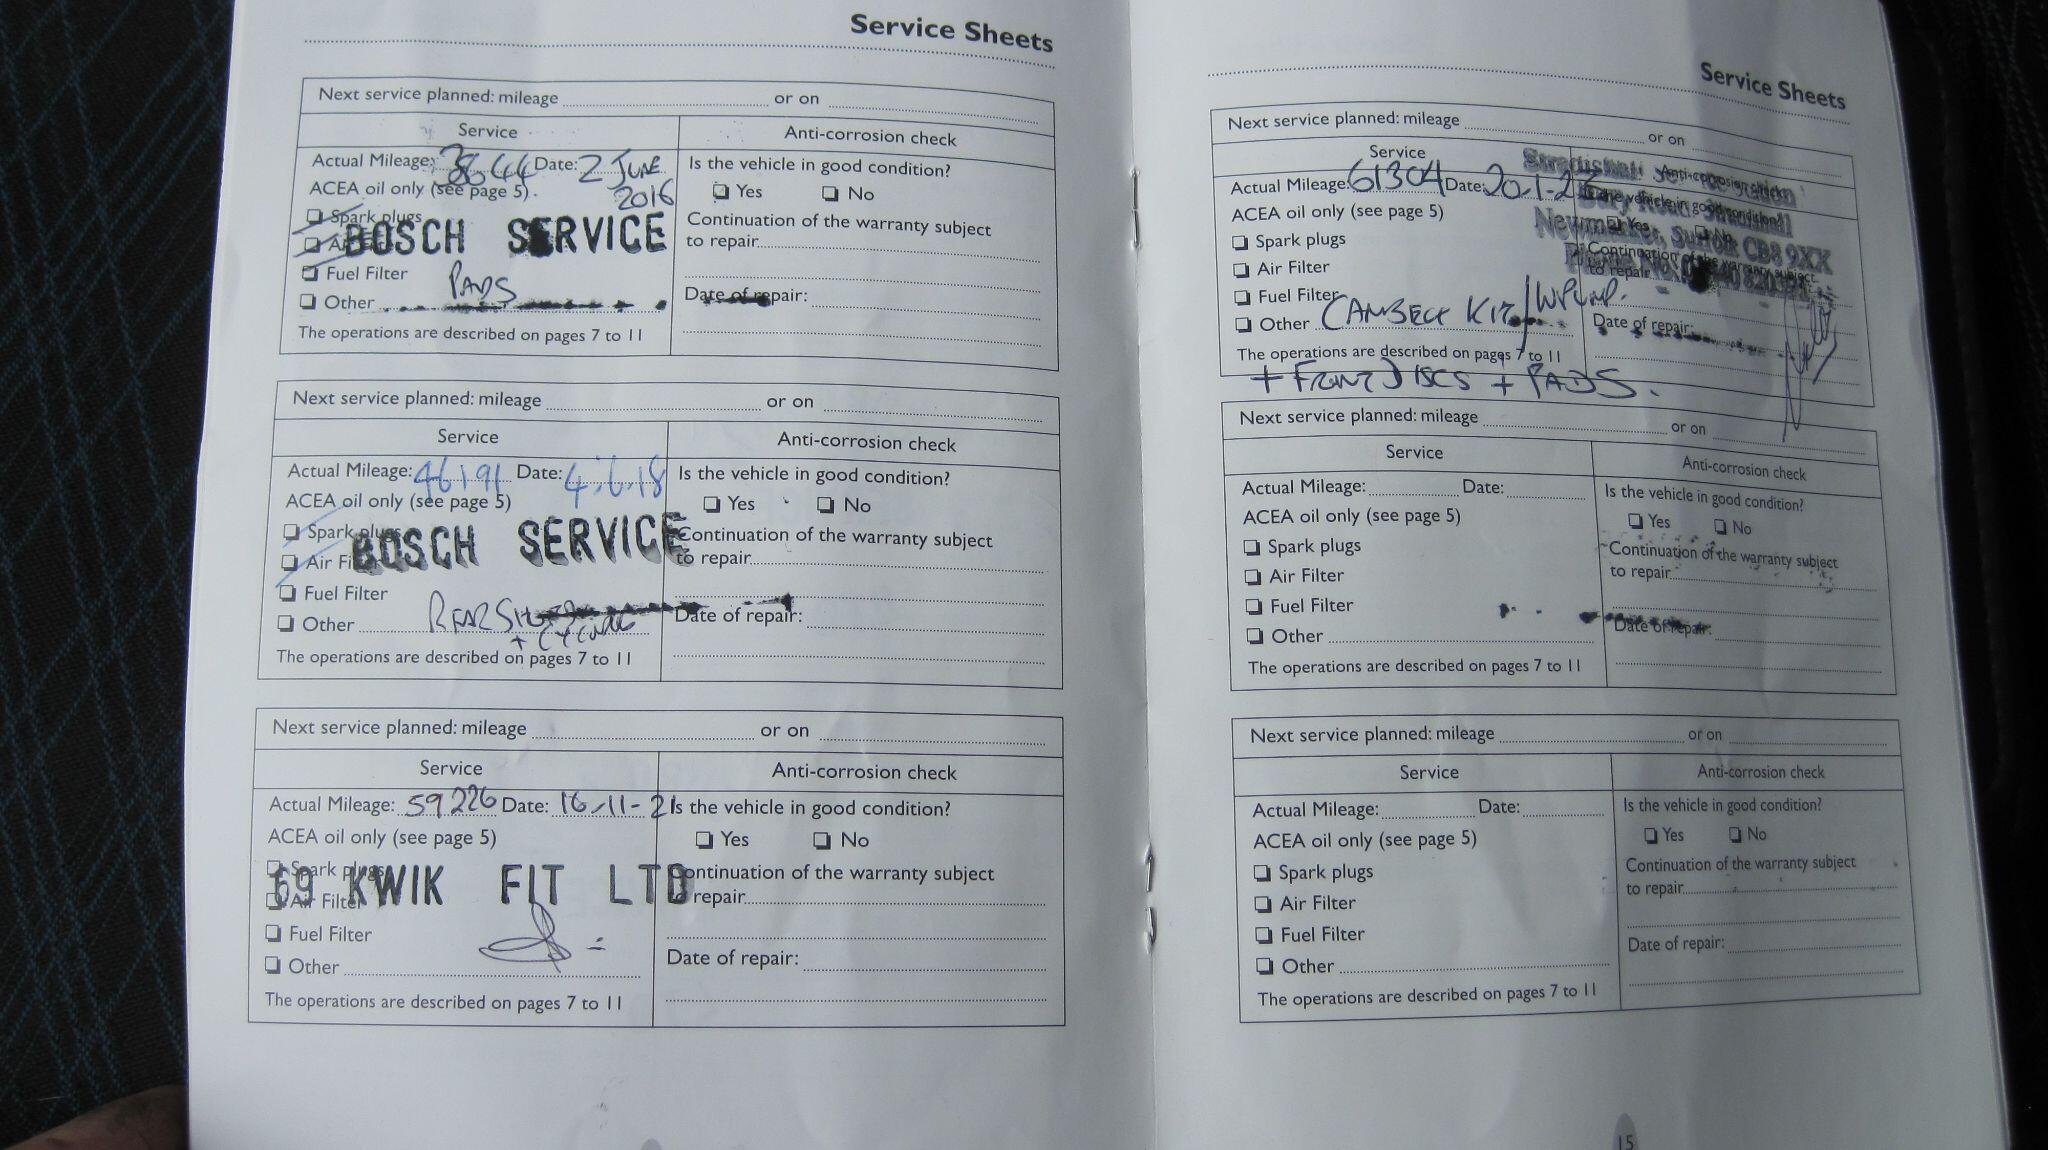 Service Sheets
Next service planned: mileage or on
Service Anti-corrosion check
Actual Mileage: Date: 2 JUNE
2016
Is the vehicle in good condition?
ACEA oil only (see page 5).
Yes No
Spark plugs
BOSCH SERVICE
Continuation of the warranty subject
to repair
Fuel Filter
Other PADS
Date of repair:
The operations are described on pages 7 to 11
Next service planned: mileage or on
Service Anti-corrosion check
Actual Mileage: 46191 Date: 4.6.18
Is the vehicle in good condition?
ACEA oil only (see page 5)
Yes No
Spark plugs
BOSCH SERVICE
Continuation of the warranty subject
to repair
Air
Fuel Filter
Other REAR
+
Date of repair:
The operations are described on pages 7 to 11
Next service planned: mileage or on
Service Anti-corrosion check
Actual Mileage: 59226 Date: 16-11-21
Is the vehicle in good condition?
ACEA oil only (see page 5)
Yes No
Spark plugs
69 KWIK FIT LTD
Continuation of the warranty subject
repair
Air Filter
Fuel Filter
Other
Date of repair:
The operations are described on pages 7 to 11
Service Sheets
Next service planned: mileage or on
Service Anti-corrosion check
Actual Mileage: 61304 Date: 20-1-
ACEA oil only (see page 5)
Yes
Newmarket, Suffolk CB8 9XX
Spark plugs
Air Filter
Continuation of the warranty subject
to repair
Fuel Filter
Other CAMBELT KIT / W PUMP.
Date of repair:
The operations are described on pages 7 to 11
+ FRONT DISCS + PADS.
Next service planned: mileage or on
Service Anti-corrosion check
Actual Mileage: Date:
Is the vehicle in good condition?
ACEA oil only (see page 5)
Yes No
Spark plugs
Continuation of the warranty subject
to repair
Air Filter
Fuel Filter
Other
Date of repair:
The operations are described on pages 7 to 11
Next service planned: mileage or on
Service Anti-corrosion check
Actual Mileage: Date:
Is the vehicle in good condition?
ACEA oil only (see page 5)
Yes No
Spark plugs
Continuation of the warranty subject
to repair
Air Filter
Fuel Filter
Other
Date of repair:
The operations are described on pages 7 to 11
15